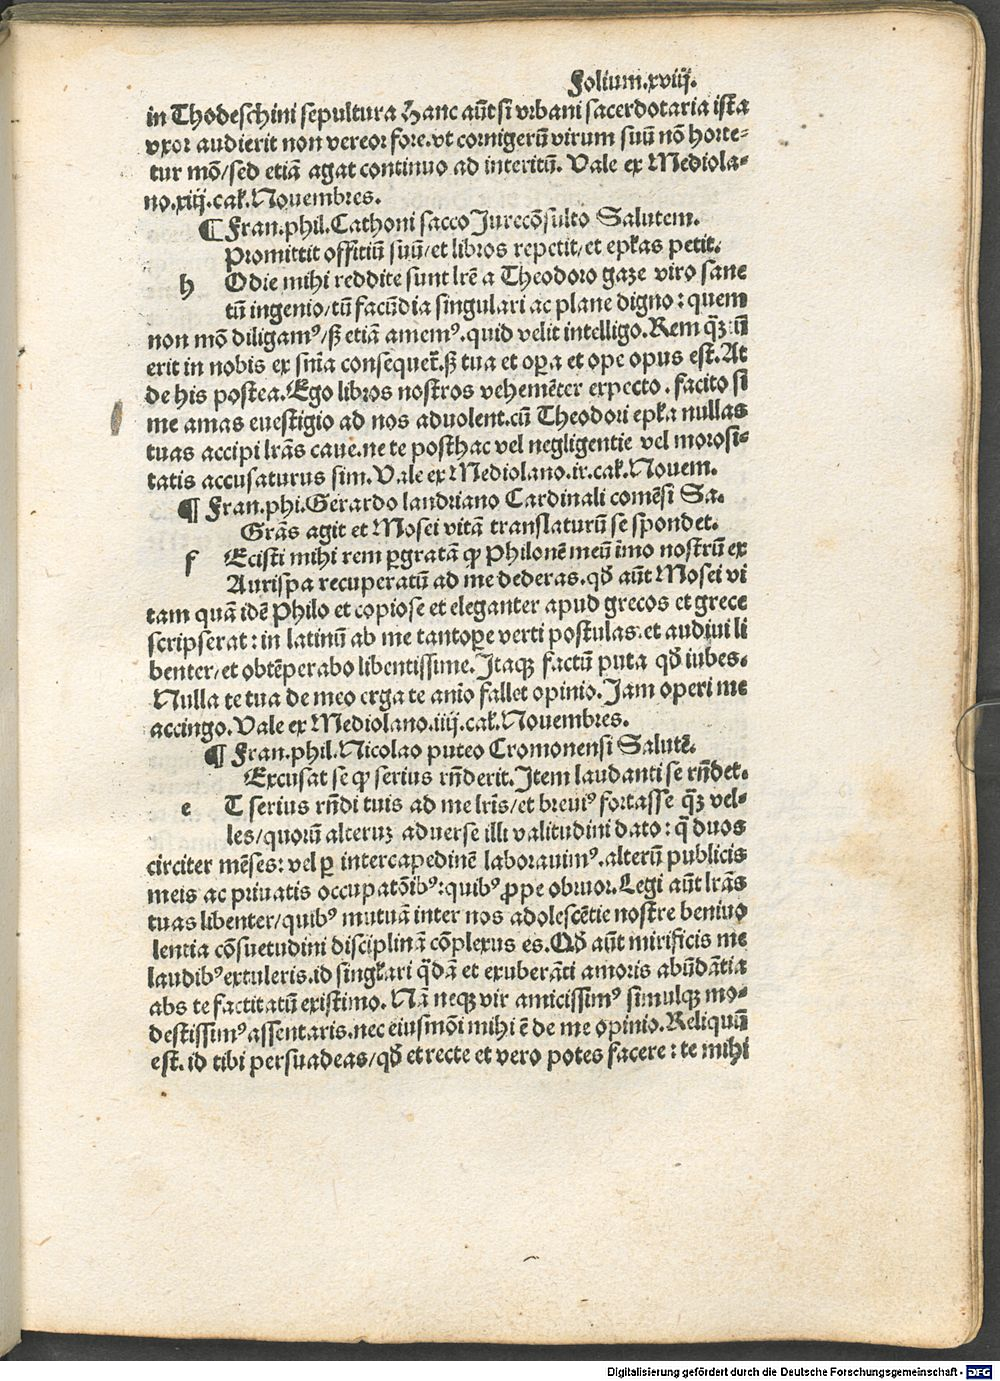 Folium.xviij.
in Thodeschini sepultura Hanc aūt si vrbani sacerdotaria ista
vxor audierit non vereor fore.vt cornigerū virum suū nō horte⸗
tur mō/sed etiā agat continuo ad interitū. Vale ex Mediola⸗
no.xiij.cal̄.Nouembres.
¶ Fran.phil.Cathoni sacco Jurecōsulto Salutem.
Promittit offitiū suū/et libros repetit/et epl̄as petit.
h Odie mihi reddite sunt lr̄e a Theodoro gaze viro sane
tū ingenio/tū facūdia singulari ac plane digno: quem
non mō diligamꝰ/sꝫ etiā amemꝰ.quid velit intelligo.Rem qꝫ ū
erit in nobis ex snīa consequet̄.sꝫ tua et oꝑa et ope opus est. At
de his postea.Ego libros nostros vehemēter expecto. facito si
me amas euestigio ad nos aduolent.cū Theodori epl̄a nullas
tuas accipi lr̄as caue.ne te posthac vel negligentie vel morosi⸗
tatis accusaturus sim. Vale ex Mediolano.ix.cal̄.Nouem.
¶ Fran.phi.Gerardo landriano Cardinali comēsi Sa.
Grās agit et Mosei vitā translaturū se spondet.
f Ecisti mihi rem ꝑgratā ꝙ Philonē meū īmo nostrū ex
Aurispa recuperatū ad me dederas.qđ aūt Mosei vi
tam quā idē Philo et copiose et eleganter apud grecos et grece
scripserat: in latinū ab me tantoꝑe verti postulas.et audiui li
benter/et obtēperabo libentissime.Itaqꝫ factū puta qđ iubes.
Nulla te tua de meo erga te aīo fallet opinio.Jam operi me
accingo.Vale ex Mediolano.iiij.cal̄.Nouembres.
¶ Fran.phil.Nicolao puteo Cromonensi Salutē.
Excusat se ꝙ serius rn̄derit.Item laudanti se rn̄det.
e T serius rn̄di tuis ad me lr̄is/et breuiꝰ fortasse qꝫ vel⸗
les/quorū alteruꝫ aduerse illi valitudini dato: q̄ duos
circiter mēses: vel ꝑ intercapedinē laborauimꝰ.alterū publicis
meis ac priuatis occupatōibꝰ:quibꝰ ꝓpe obruor.Legi aūt lr̄as
tuas libenter/quibꝰ mutuā inter nos adolescētie nostre beniuo
lentia cōsuetudini disciplinā cōplexus es.Qđ aūt mirificis me
laudibꝰ extuleris.id singl̄ari q̄dā et exuberāti amoris abūdātia
abs te factitatū existimo. Nā neqꝫ vir amicissimꝰ simulqꝫ mo⸗
destissimꝰ assentaris.nec eiusmōi mihi ē de me opinio.Reliquū
est.id tibi persuadeas/qđ et recte et vero potes facere: te mihi
Digitalisierung gefördert durch die Deutsche Forschungsgemeinschaft - DFG